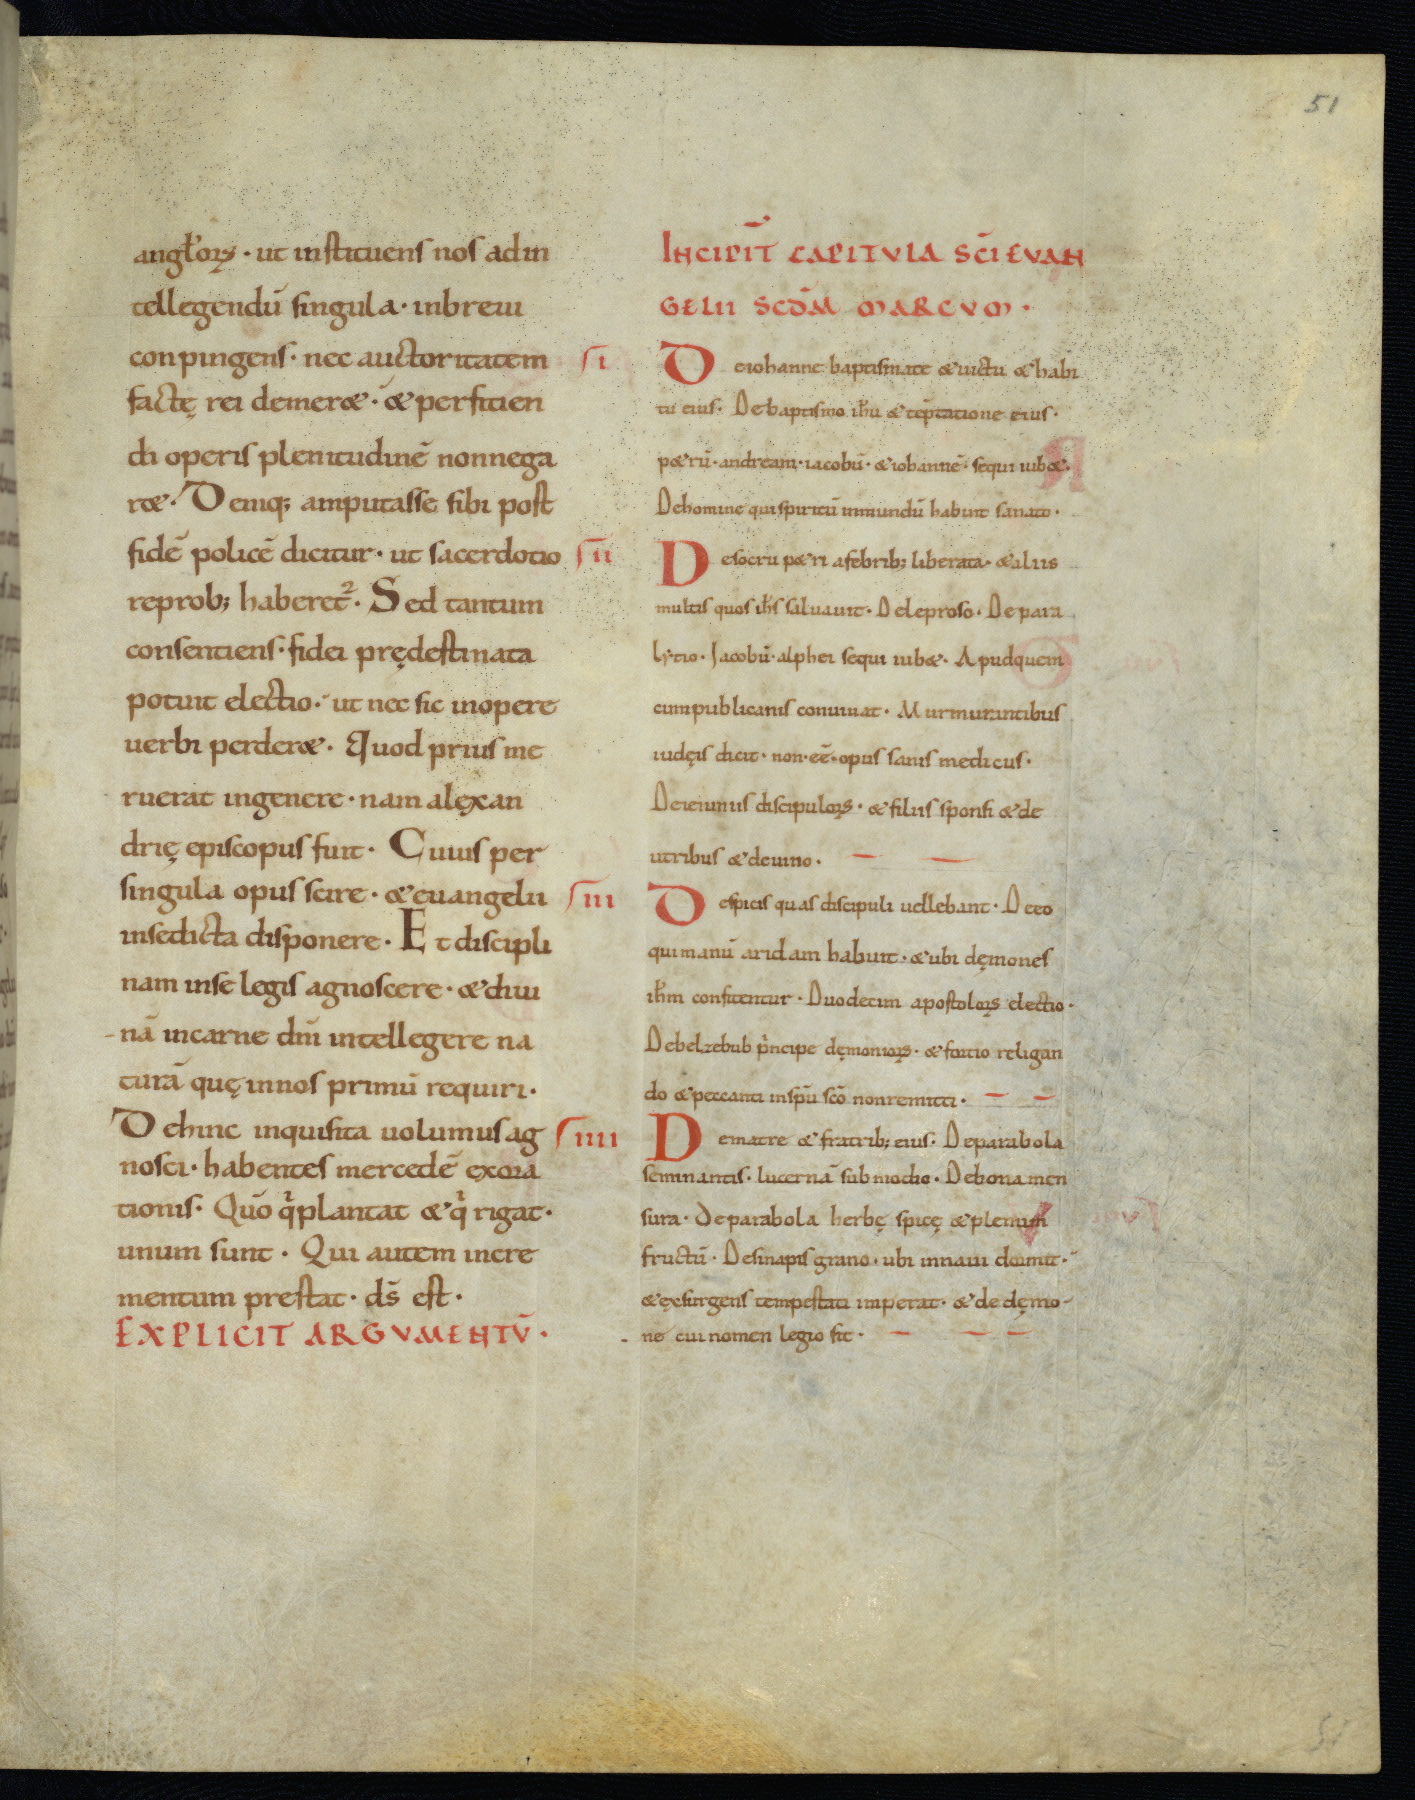 51
angłoꝝ · ut instituens nos ad in
tellegendū singula · in breui
conpingens · nec auctoritatem
factę rei demeret · et perficien
di operis plenitudinē non nega
ret · Deniq; amputasse sibi post
fidē policē dicitur · ut sacerdotio
reprob; haberet᷑ · Sed tantum
consentiens · fidei prędestinata
potuit electio · ut nec sic in opere
uerbi perderet · Quod prius me
ruerat in genere · nam alęxan
drię episcopus fuit · Cuius per
singula opus scire · et euangelii
in se dicta disponere · Et discipli
nam in se legis agnoscere · et diui
nā in carne dn̄i intellegere na
turā quę in nos primū requiri ·
Dehinc inquisita uolumus ag
nosci · habentes mercedē exora
tionis · Quō q̇ plantat et q̇ rigat ·
unum sunt · Qui autem incre
mentum prestat · ds̄ est ·
EXPLICIT ARGVMENTV̄ ·
INCIPIT̄ CAPITVLA SC̄I EVAN
GELII SCDM̄ MARCVM ·
I
De iohanne baptismate et uictu et habi
tu eius · De baptismo ihu̅ et tēptatione eius ·
petrū · andream · iacobū · et iohannē · sequi iubet ·
De homine qui spiritū inmundū habuit sanato ·
II
De socru petri a febrib; liberata · et aliis
multis quos ihs̅ saluauit · De leproso · De para
lytio · Iacobū · alphei sequi iubet · Apud quem
cum publicanis conuiuat · Murmurantibus
iudęis dicit · non · eē · opus sanis medicus ·
De ieiuniis discipuloꝝ · et filiis sponsi et de
utribus et de uino ·
III
De spicis quas discipuli uellebant · De eo
qui manū aridam habuit · et ubi dęmones
ihm̅ confitentur · Duodecim apostoloꝝ electio ·
De belzebub p̍ncipe dęmonioꝝ · et fortio religan
do et peccanti in spū scō non remitti ·
IIII
De matre et fratrib; eius · De parabola
seminantis · lucernā sub modio · De bona men
sura · De parabola herbę spicę et plenum
fructū · De sinapis grano · ubi in naui dormit ·
et exsurgens tempestati imperat · et de dęmo
ne cui nomen legio sit ·